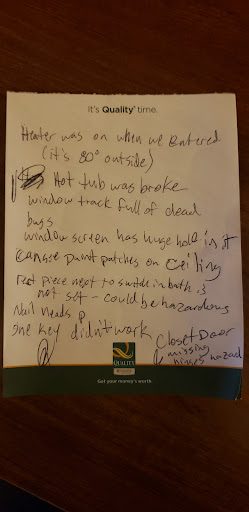 It's Quality time.
Heater was on when we Entered
(it's 80° outside)
Hot tub was broke
window track full of dead
bugs
window screen has huge hole in it
paint patches on ceiling
piece next to switch in bath is
not set - could be hazardous
Nail needs
one key didn't work
Closet Door
missing
hinges hazard
QUALITY
Get your money's worth.